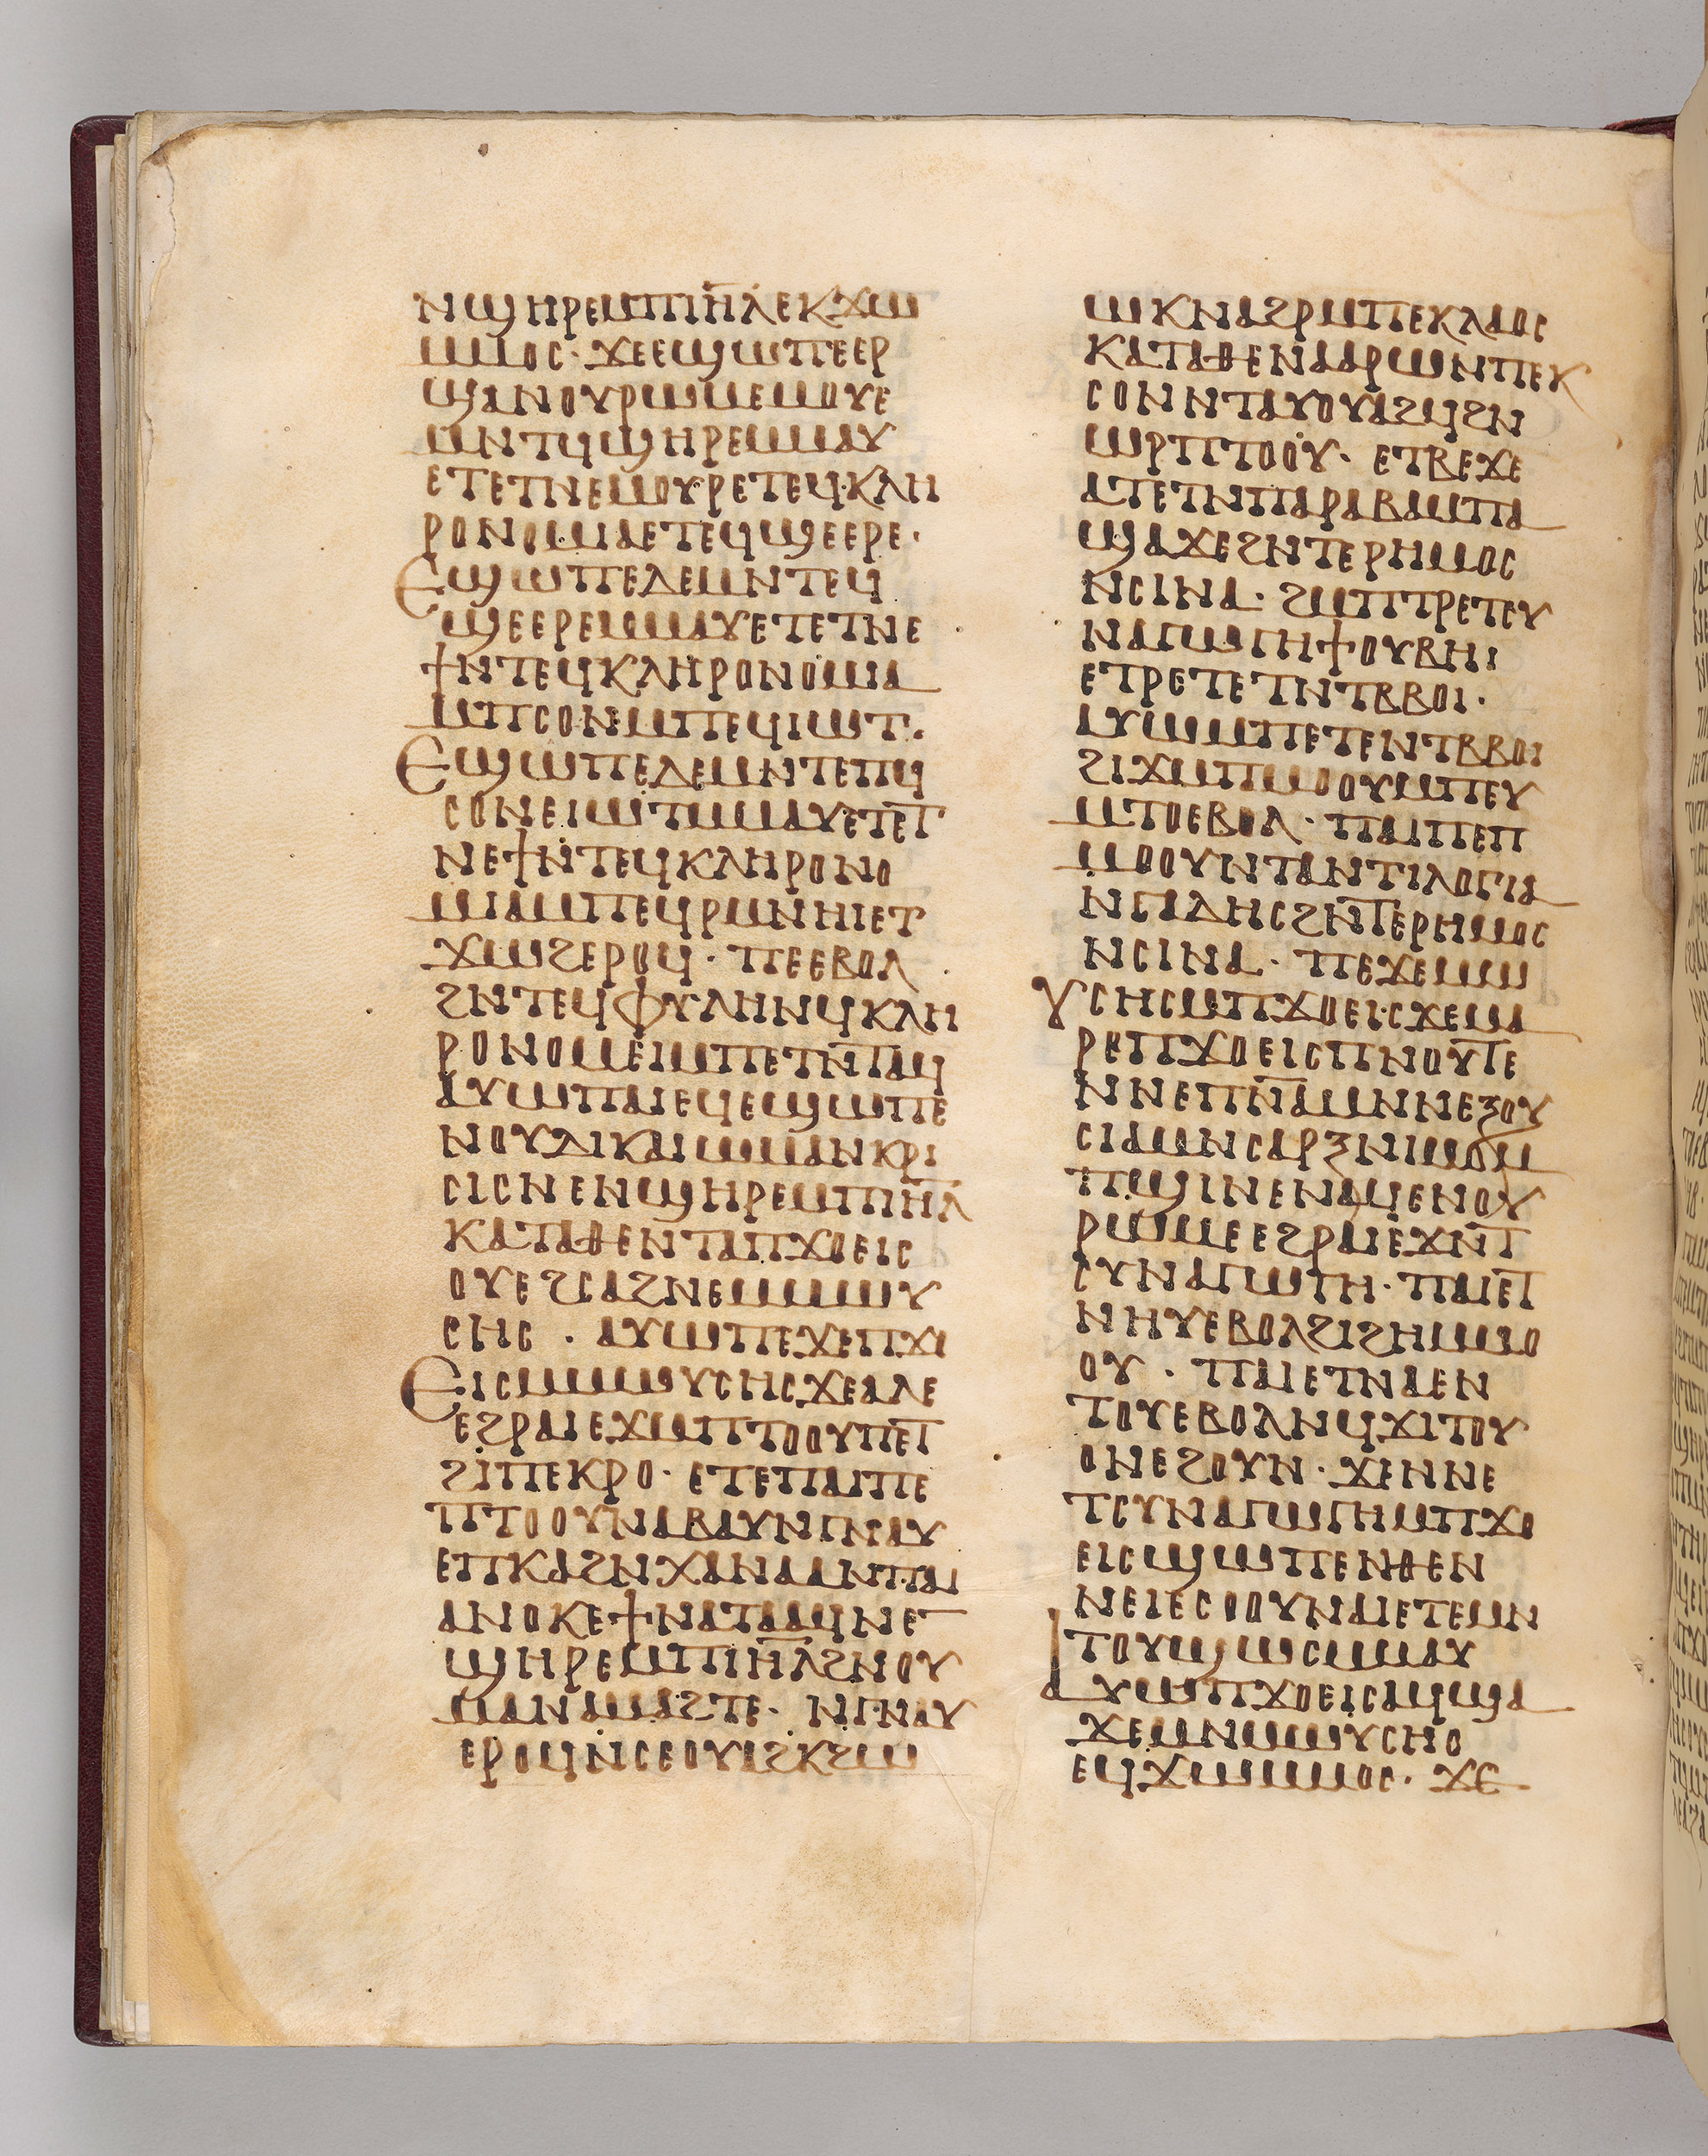 ⲛϣⲏⲣⲉⲙⲡⲓⲏ̅ⲗ̅ⲉⲕϫⲱ
ⲙⲙⲟⲥ· ϫⲉⲉϣⲱⲡⲉⲉⲣ
ϣⲁⲛⲟⲩⲣⲱⲙⲉⲙⲟⲩⲉ
ⲙⲛⲧϥϣⲏⲣⲉⲙⲙⲁⲩ
ⲉⲧⲉⲧⲛⲉⲙⲟⲩⲣⲉⲧⲉϥⲕⲗⲏ
ⲣⲟⲛⲟⲙⲓⲁⲉⲧⲉϥϣⲉⲉⲣⲉ·
ⲉϣⲱⲡⲉⲇⲉⲙⲛⲧⲉϥ
ϣⲉⲉⲣⲉⲙⲙⲁⲩⲉⲧⲉⲧⲛⲉ
ϯⲛⲧⲉϥⲕⲗⲏⲣⲟⲛⲟⲙⲓⲁ
ⲙⲡⲥⲟⲛⲙⲡⲉϥⲓⲱⲧ.
ⲉϣⲱⲡⲉⲇⲉⲙⲛⲧⲉⲡϥ
ⲥⲟⲛⲉⲓⲱⲧⲙⲙⲁⲩⲉⲧⲉⲧ
ⲛⲉϯⲛⲧⲉϥⲕⲗⲏⲣⲟⲛⲟ
ⲙⲓⲁⲙⲡⲉϥⲣⲙⲛⲏⲓⲉⲧ
ϫⲱϩⲉⲣⲟϥ· ⲡⲉⲉⲃⲟⲗ
ϩⲛⲧⲉϥⲫⲩⲗⲏⲛϥⲕⲗⲏ
ⲣⲟⲛⲟⲙⲉⲓⲙⲡⲉⲧⲛⲧⲁϥ
ⲁⲩⲱⲡⲁⲓⲉϥⲉϣⲱⲡⲉ
ⲛⲟⲩⲇⲓⲕⲁⲓⲱⲙⲁⲛⲕⲣⲓ
ⲥⲓⲥⲛⲉⲛϣⲏⲣⲉⲙⲡⲓⲏ̅ⲗ̅
ⲕⲁⲧⲁⲑⲉⲛⲧⲁⲡϫⲟⲉⲓⲥ
ⲟⲩⲉϩⲥⲁϩⲛⲉⲙⲙⲱⲩ
ⲥⲏⲥ · ⲁⲩⲱⲡⲉϫⲉⲡϫⲟ
ⲉⲓⲥⲙⲙⲱⲩⲥⲏⲥϫⲉⲁⲗⲉ
ⲉϩⲣⲁⲓⲉϫⲙⲡⲧⲟⲟⲩⲡⲉⲧ
ϩⲓⲡⲉⲕⲣⲟ· ⲉⲧⲉⲡⲁⲓⲡⲉ
ⲡⲧⲟⲟⲩⲛⲁⲃⲁⲩⲛⲅⲛⲁⲩ
ⲉⲡⲕⲁϩⲛⲭⲁⲛⲁⲁⲛⲡⲁⲓ
ⲁⲛⲟⲕⲉϯⲛⲁⲧⲁⲁϥⲛⲉⲛ̅
ϣⲏⲣⲉⲙⲡⲓⲏ̅ⲗ̅ϩⲛⲟⲩ
ⲙⲁⲛⲁⲙⲁϩⲧⲉ· ⲛⲅⲛⲁⲩ
ⲉⲣⲟϥⲛⲥⲉⲟⲩⲁϩⲕϩⲱ
ⲱⲕⲛⲁϩⲣⲙⲡⲉⲕⲗⲁⲟⲥ
ⲕⲁⲧⲁⲑⲉⲛⲁⲁⲣⲱⲛⲡⲉⲕ
ⲥⲟⲛⲛⲧⲁⲩⲟⲩⲁϩϥϩⲛ
ⲱⲣⲡⲧⲟⲟⲩ· ⲉⲧⲃⲉϫⲉ
ⲁⲧⲉⲧⲛⲡⲁⲣⲁⲃⲁⲙⲡⲁ
ϣⲁϫⲉϩⲛⲧⲉⲣⲏⲙⲟⲥ
ⲛⲥⲓⲛⲁ· ϩⲙⲡⲧⲣⲉⲧⲥⲩ
ⲛⲁⲅⲱⲅⲏϯⲟⲩⲃⲏⲓ
ⲉⲧⲣⲉⲧⲉⲧⲛⲧⲃⲃⲟⲓ·
ⲁⲩⲱⲙⲡⲉⲧⲉⲛⲧⲃⲃⲟⲓ
ϩⲓϫⲙⲡⲙⲟⲟⲩⲙⲡⲉⲩ
ⲙⲧⲟⲉⲃⲟⲗ· ⲡⲁⲓⲡⲉⲡ
ⲙⲟⲟⲩⲛⲧⲁⲛⲧⲓⲗⲟⲅⲓⲁ
ⲛⲅⲁⲇⲏⲥϩⲛⲧⲉⲣⲏⲙⲟⲥ
ⲛⲥⲓⲛⲁ· ⲡⲉϫⲉⲙⲱ
ⲩⲥⲏⲥⲙⲡϫⲟⲉⲓⲥϫⲉⲙⲁ
ⲣⲉⲡϫⲟⲉⲓⲥⲡⲛⲟⲩⲧⲉ
ⲛⲛⲉⲡⲛ̅ⲁ̅ⲙⲛⲛⲉⲝⲟⲩ
ⲥⲓⲁⲙⲛⲥⲁⲣⲝⲛⲓⲙϭⲙ
ⲡϣⲓⲛⲉⲛⲁϥⲉⲛⲟⲩ
ⲣⲱⲙⲉⲉϩⲣⲁⲓⲉϫⲛⲧ
ⲥⲩⲛⲁⲅⲱⲅⲏ· ⲡⲁⲓⲉⲧ
ⲛⲏⲩⲉⲃⲟⲗϩⲓϩⲏⲙⲙⲟ
ⲟⲩ · ⲡⲁⲓⲉⲧⲛⲁⲉⲛ
ⲧⲟⲩⲉⲃⲟⲗⲛϥϫⲓⲧⲟⲩ
ⲟⲛⲉϩⲟⲩⲛ· ϫⲉⲛⲛⲉ
ⲧⲥⲩⲛⲁⲅⲱⲅⲏⲙⲡϫⲟ
ⲉⲓⲥϣⲱⲡⲉⲛⲑⲉⲛ
ⲛⲉⲓⲉⲥⲟⲟⲩⲛⲁⲓⲉⲧⲉⲙⲛ
ⲧⲟⲩϣⲱⲥⲙⲙⲁⲩ
ⲁⲩⲱⲡϫⲟⲉⲓⲥⲁϥϣⲁ
ϫⲉⲙⲛⲙⲱⲩⲥⲏⲥ
ⲉϥϫⲱⲙⲙⲟⲥ· ϫⲉ